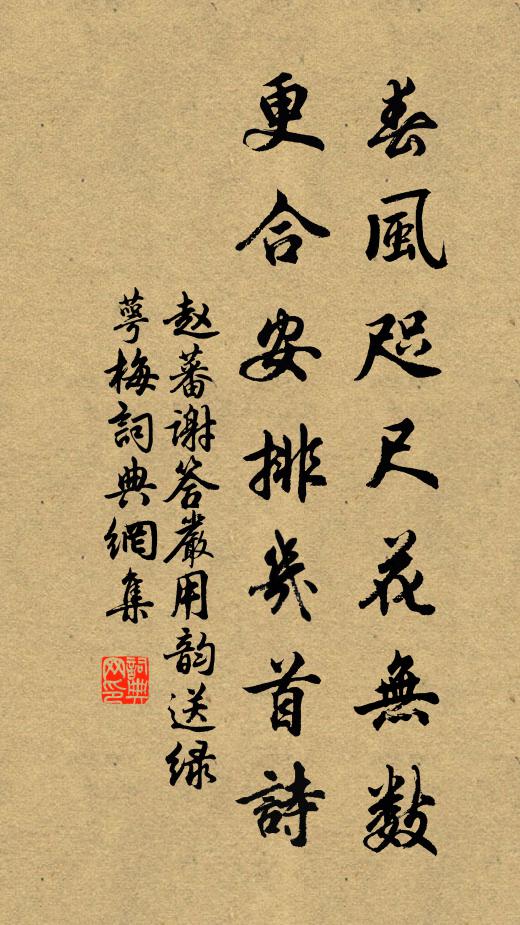 春風咫尺花無數
更合安排幾首詩
赵蕃谢答嚴用韵送绿
萼梅詞典網集
詞典网印